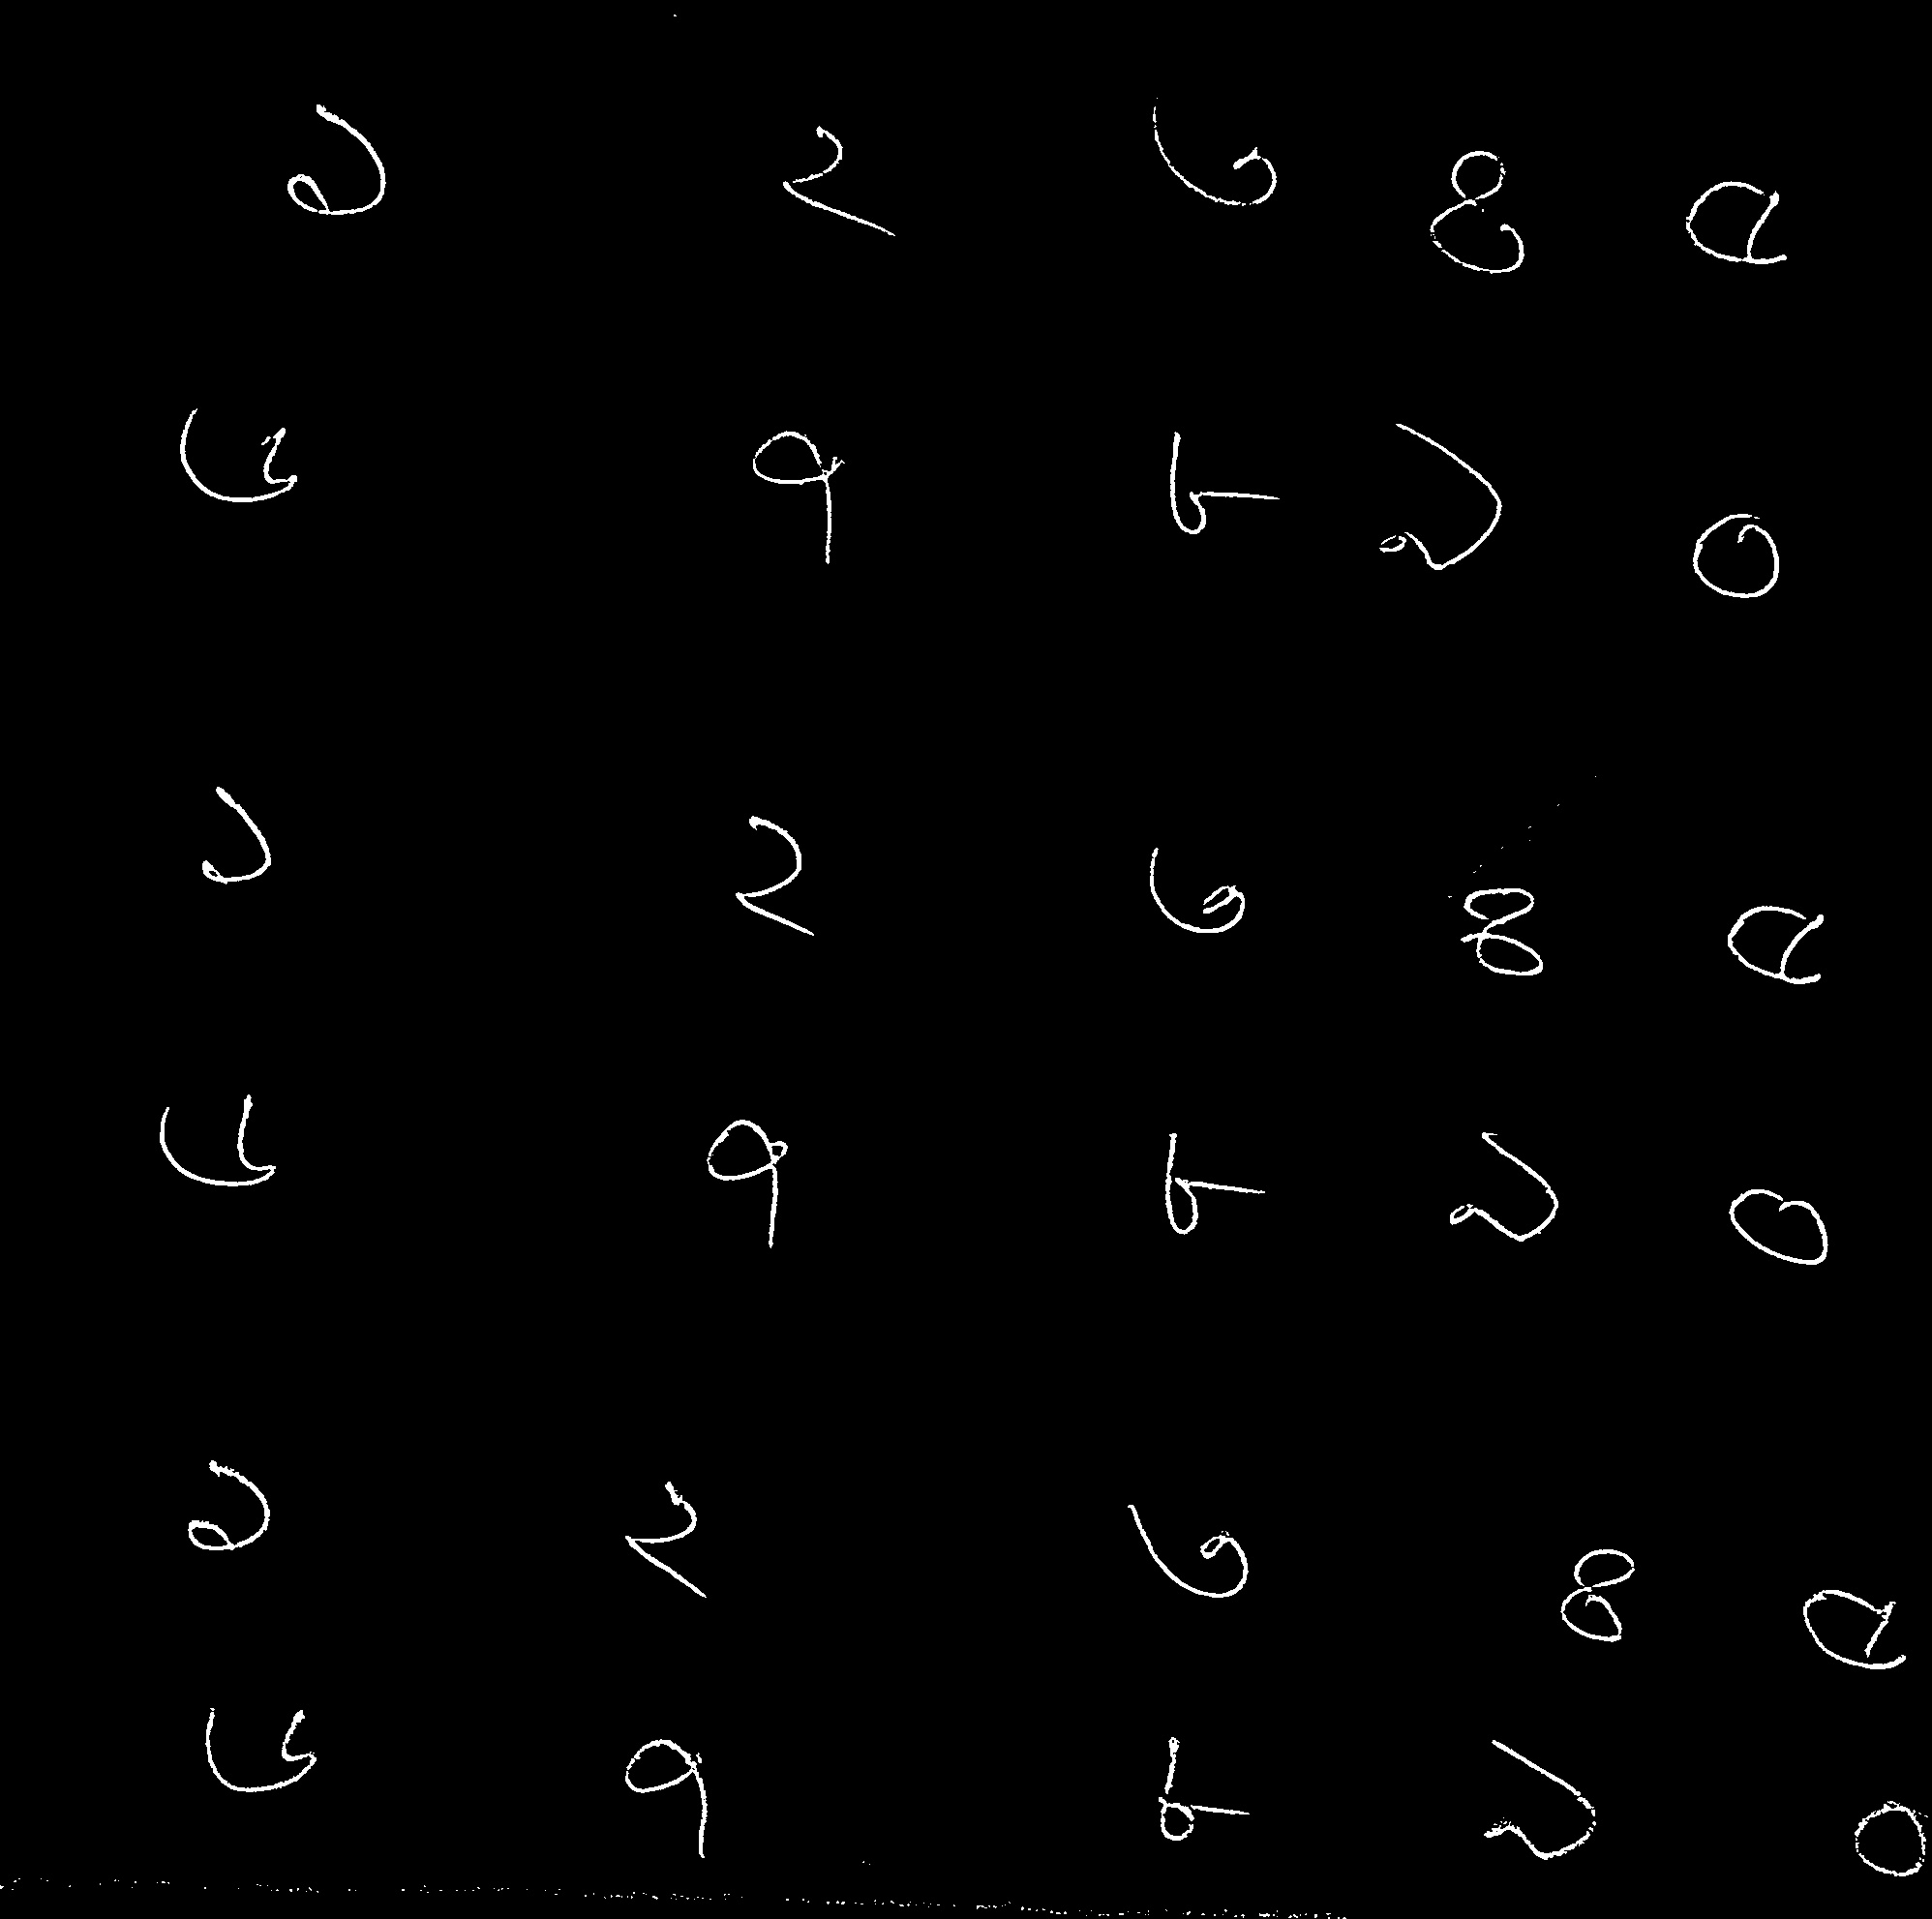 ১ ২ ৩ ৪ ৫
৬ ৭ ৮ ৯ ০
১ ২ ৩ ৪ ৫
৬ ৭ ৮ ৯ ০
১ ২ ৩ ৪ ৫
৬ ৭ ৮ ৯ ০